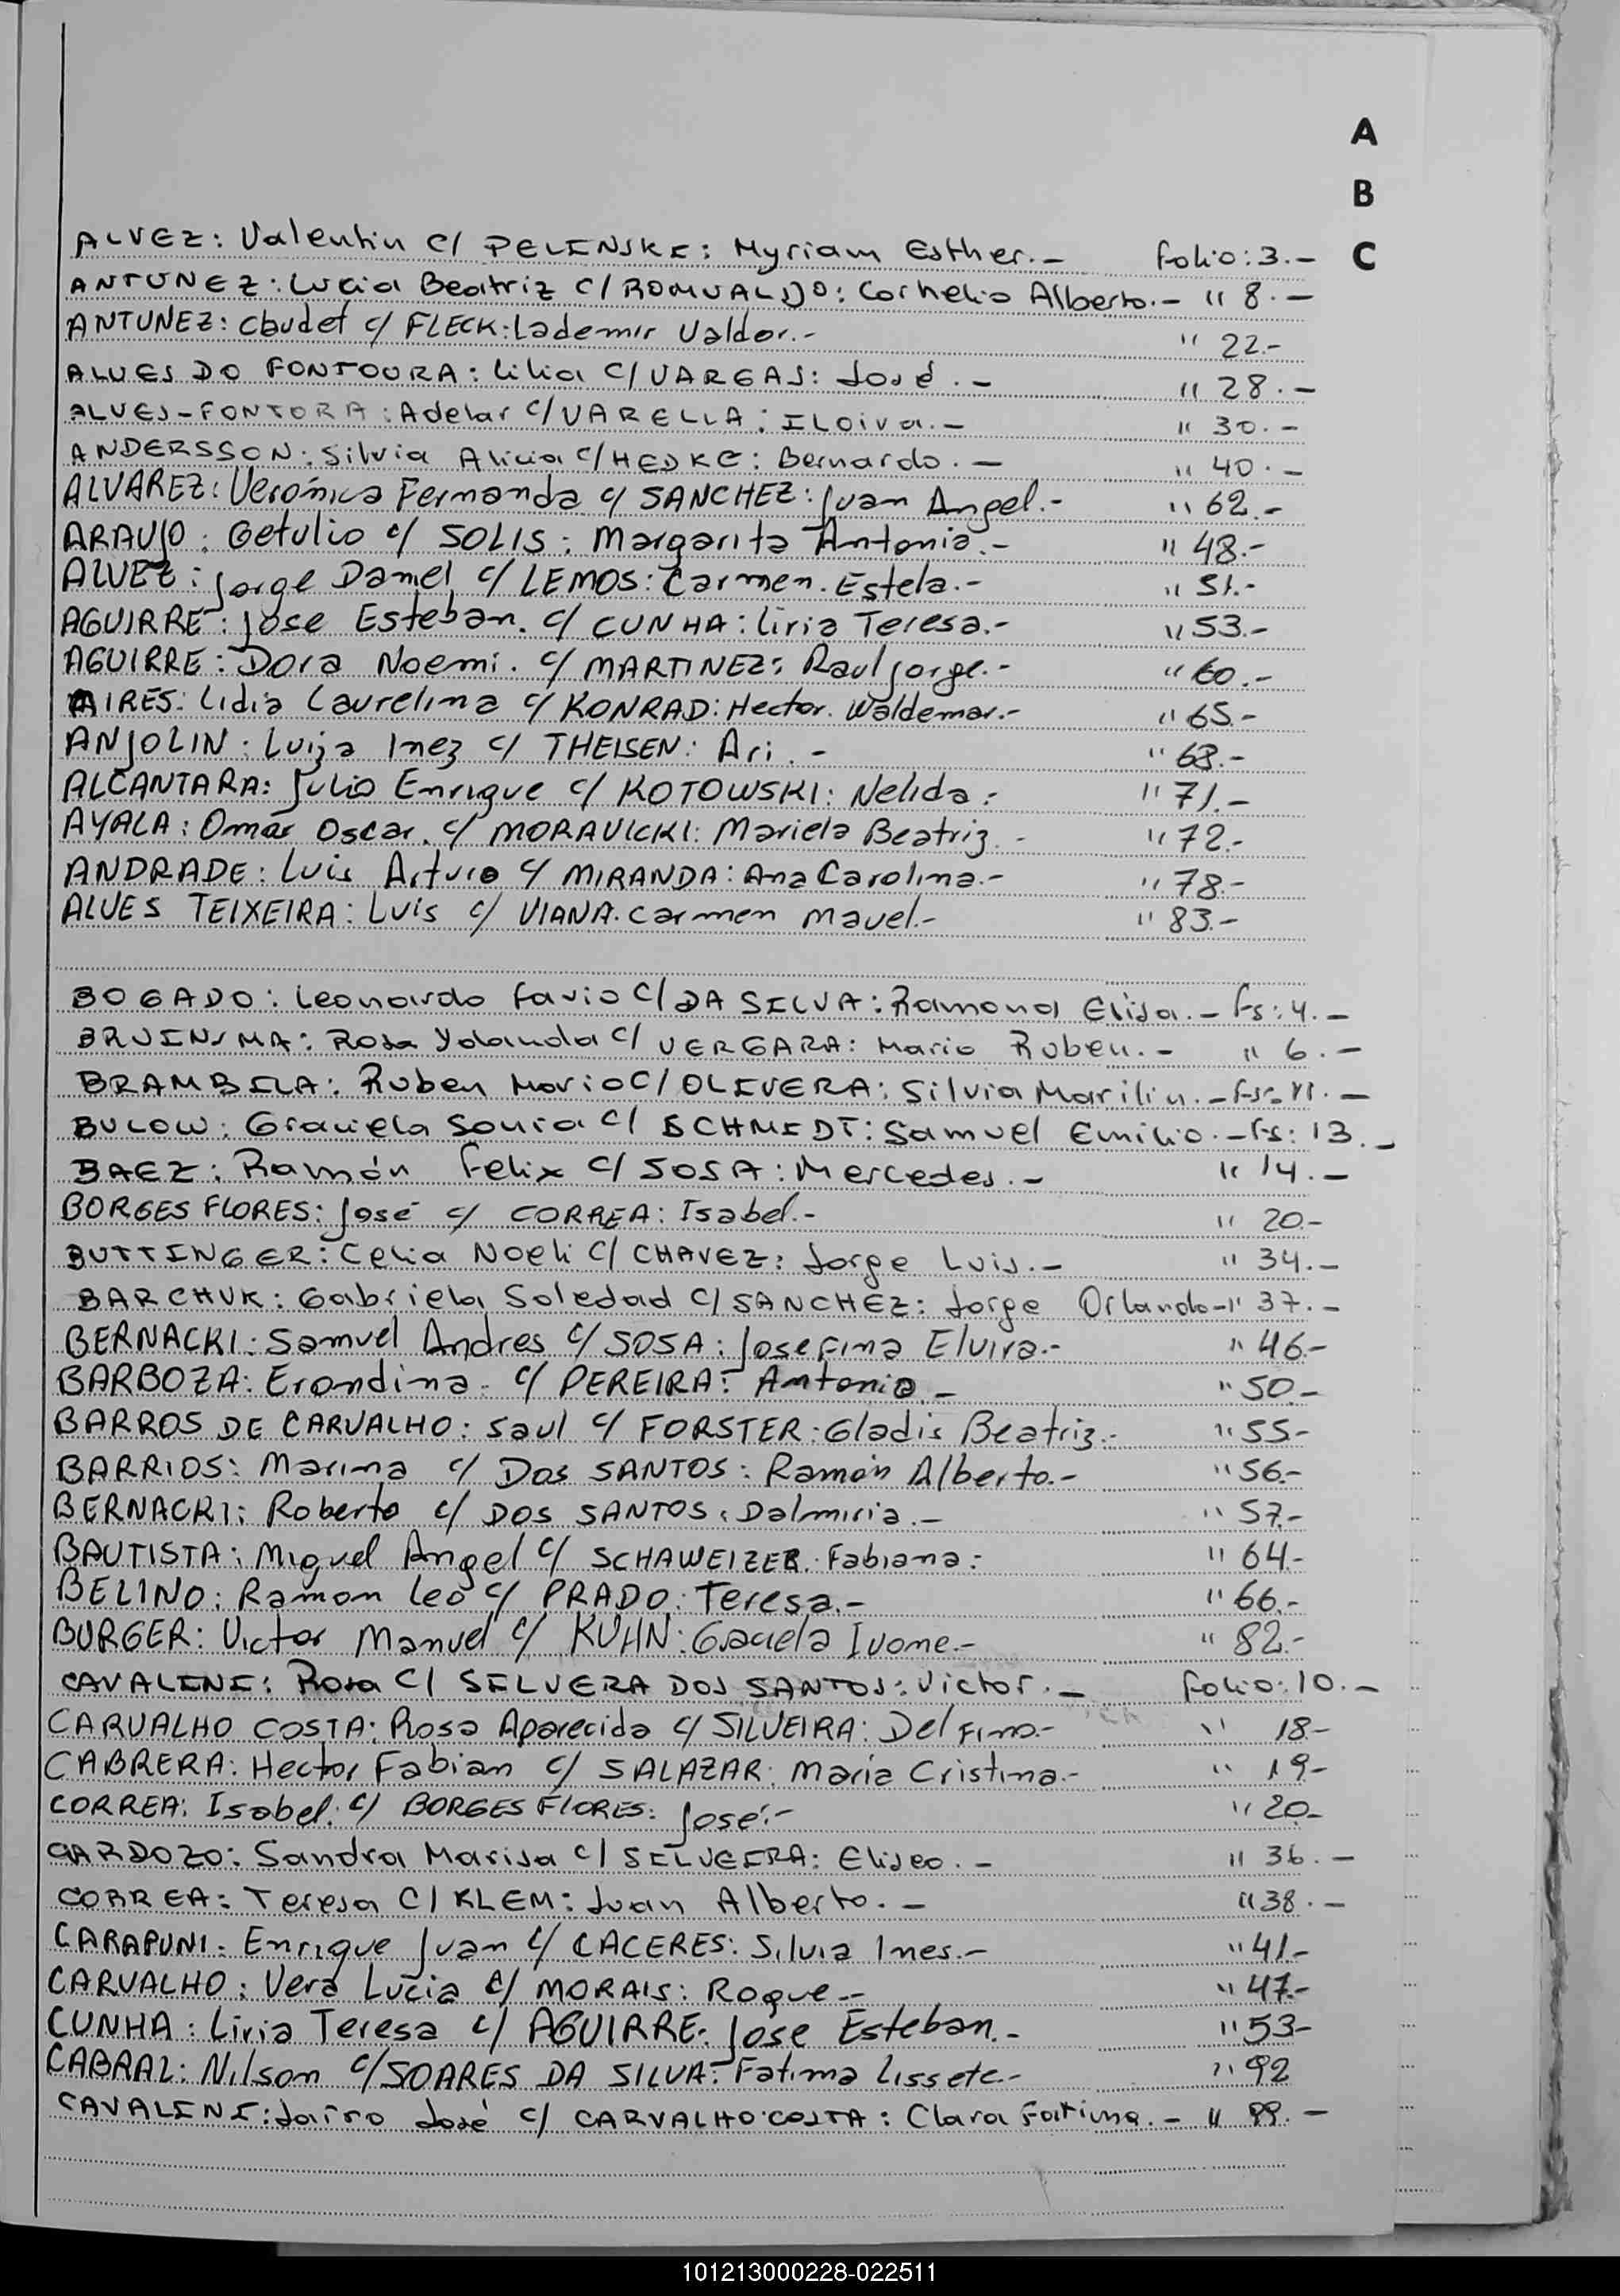 A
B
C
ALVEZ: Valentin c/ PELINSKI: Myriam Esther.- Folio: 3.-
ANTUNEZ: Lucia Beatriz c/ ROMUALDO: Cornelio Alberto.- " 8.-
ANTUNEZ: Claudet c/ FLECK: Lademir Valdor.- " 22.-
ALVES DO FONTOURA: Lilia c/ VARGAS: José.- " 28.-
ALVES-FONTORA: Adelar c/ VARELLA: ILoiva.- " 30.-
ANDERSSON: Silvia Alicia c/ HEDKE: Bernardo.- " 40.-
ALVAREZ: Verónica Fernanda c/ SANCHEZ: Juan Angel.- " 62.-
ARAUJO: Getulio c/ SOLIS: Margarita Antonia.- " 48.-
ALVEZ: Jorge Daniel c/ LEMOS: Carmen Estela.- " 51.-
AGUIRRE: Jose Esteban. c/ CUNHA: Liria Teresa.- " 53.-
AGUIRRE: Dora Noemi. c/ MARTINEZ: Raul Jorge.- " 60.-
AIRES: Lidia Laurelina c/ KONRAD: Hector Waldemar.- " 65.-
ANJOLIN: Luiza Inez c/ THEISEN: Ari.- " 68.-
ALCANTARA: Julio Enrique c/ KOTOWSKI: Nelida: " 71.-
AYALA: Omar Oscar. c/ MORAVICKI: Mariela Beatriz.- " 72.-
ANDRADE: Luis Arturo c/ MIRANDA: Ana Carolina.- " 78.-
ALVES TEIXEIRA: Luis c/ VIANA. Carmen Mavel.- " 83.-
BOGADO: Leonardo Favio c/ DA SILVA: Ramona Elisa.- Fs: 4.-
BRUINSMA: Rosa Yolanda c/ VERGARA: Mario Ruben.- " 6.-
BRAMBILA: Ruben Mario c/ OLIVERA: Silvia Marilin.- Fs: 11.-
BULOW: Graciela Sonia c/ SCHMIDT: Samuel Emilio.- Fs: 13.-
BAEZ: Ramón Felix c/ SOSA: Mercedes.- " 14.-
BORGES FLORES: José c/ CORREA: Isabel.- " 20.-
BUTTINGER: Celia Noeli c/ CHAVEZ: Jorge Luis.- " 34.-
BARCHUK: Gabriela Soledad c/ SANCHEZ: Jorge Orlando-" 37.-
BERNACKI: Samuel Andres c/ SOSA: Josefina Elvira.- " 46.-
BARBOZA: Erondina. c/ PEREIRA: Antonio.- " 50.-
BARROS DE CARVALHO: Saul c/ FORSTER: Gladis Beatriz.- " 55-
BARRIOS: Marina c/ Dos SANTOS: Ramón Alberto.- " 56.-
BERNACKI: Roberto c/ DOS SANTOS: Dalmiria.- " 57.-
BAUTISTA: Miguel Angel c/ SCHAWEIZER. Fabiana: " 64.-
BELINO: Ramon Leo c/ PRADO: Teresa.- " 66.-
BURGER: Victor Manuel c/ KUHN: Graciela Ivone.- " 82.-
CAVALINI: Rosa c/ SILVERA DOS SANTOS: Victor.- Folio: 10.-
CARVALHO COSTA: Rosa Aparecida c/ SILVEIRA: Delfino.- " 18-
CABRERA: Hector Fabian c/ SALAZAR: Maria Cristina.- " 19-
CORREA: Isabel: c/ BORGES FLORES: José.- " 20-
CARDOZO: Sandra Marisa c/ SILVEIRA: Eliseo.- " 36.-
CORREA: Teresa c/ KLEM: Juan Alberto.- " 38.-
CARAPUNI: Enrique Juan c/ CACERES: Silvia Ines.- " 41.-
CARVALHO: Vera Lucia c/ MORAIS: Roque.- " 47.-
CUNHA: Liria Teresa c/ AGUIRRE: Jose Esteban.- " 53-
CABRAL: Nilson c/ SOARES DA SILVA: Fatima Lissete.- " 92
CAVALINI: Jairo José c/ CARVALHO COSTA: Clara Fatima.- " 99.-
101213000228-022511